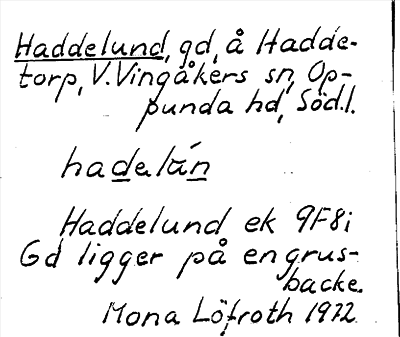 Haddelund, gd, å Hadde-
torp, V. Vingåkers sn, Op-
punda hd, Södl.
hadelún
Haddelund ek 9F8i
Gd ligger på en grus-
backe.
Mona Löfroth 1972